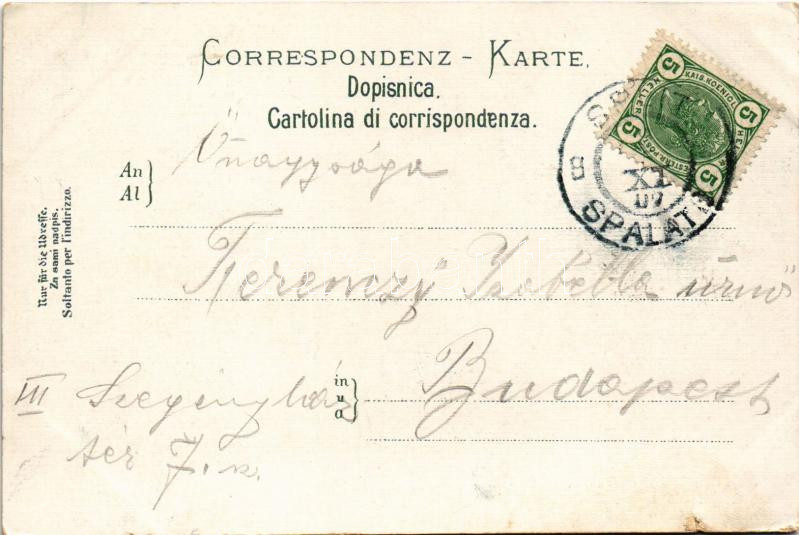 CORRESPONDENZ - KARTE.
Dopisnica.
Cartolina di corrispondenza.
An
Al
Nur für die Adresse.
Za sami nadpis.
Soltanto per l'indirizzo.
Önagysága
Ferenczy Izabella úrnő
in
u
a
Budapest
III Szegényház
tér 7. sz.
5 5 5 5
KAIS. KOENIGL
HELLER HELLER
SPALATO
B
XI
07